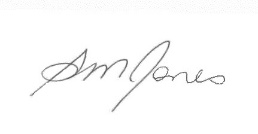 SM Jones